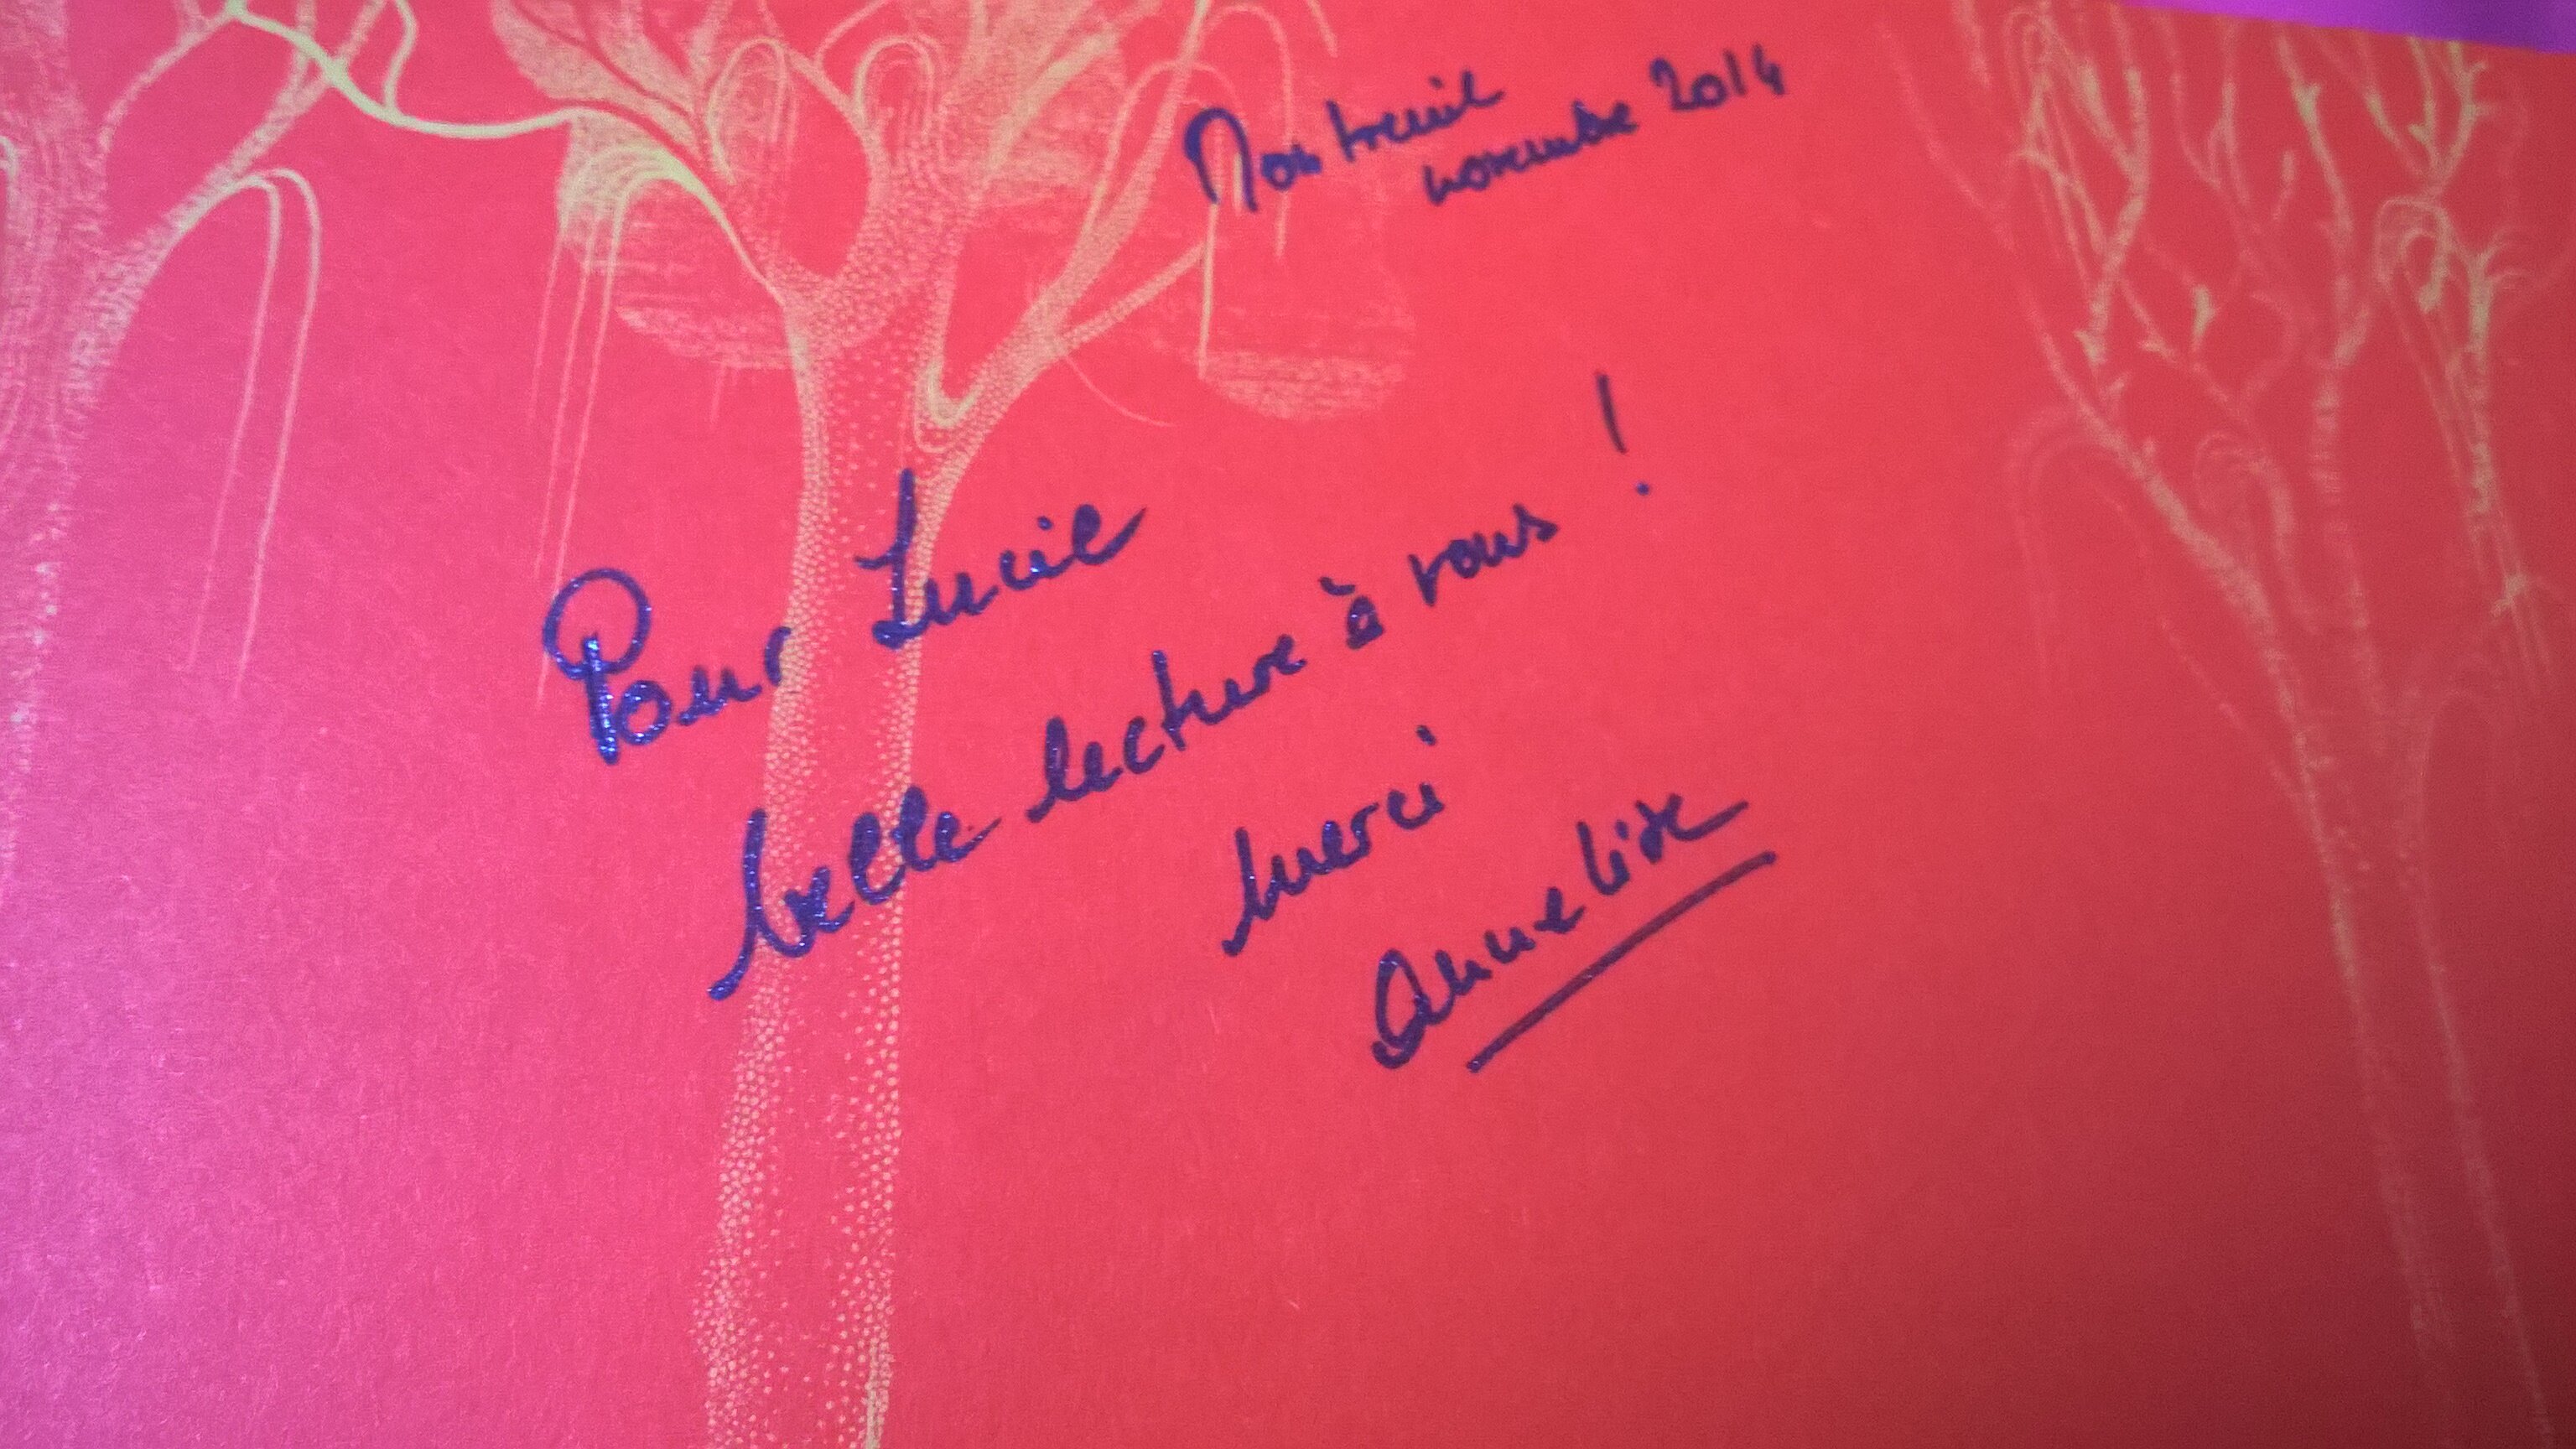 Montreuil
novembre 2014
Pour Lucie
belle lecture à vous !
merci
Annelise